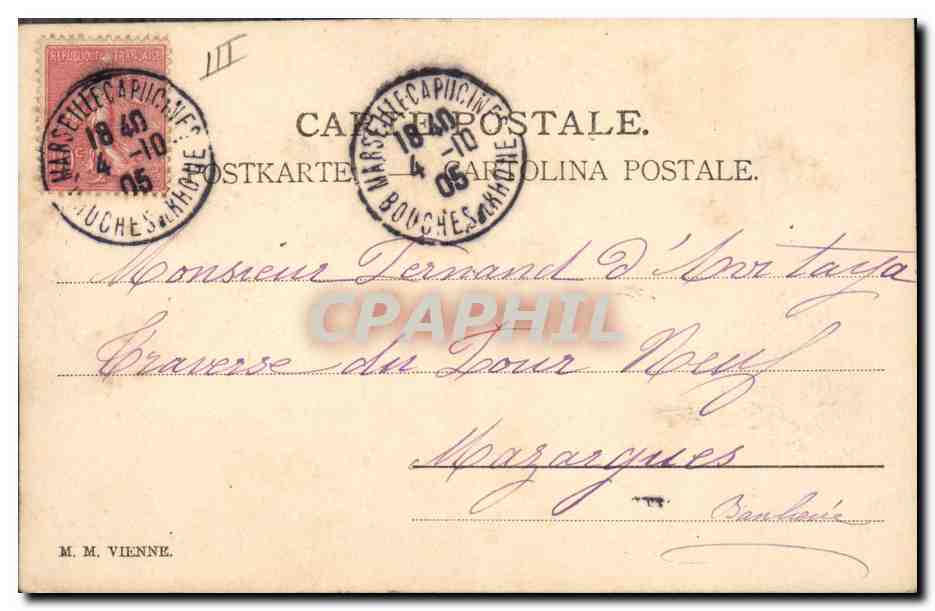 REPUBLIQUE FRANÇAISE
III
MARSEILLE CAPUCINES
18 40
4 -10
05
BOUCHES DU RHONE
MARSEILLE CAPUCINES
18 40
4 -10
05
BOUCHES DU RHONE
CARTE POSTALE.
POSTKARTE — CARTOLINA POSTALE.
Monsieur Fernand d'
CPAPHIL
Traverse du Four Neuf
Mazargues
Banlieue
M. M. VIENNE.